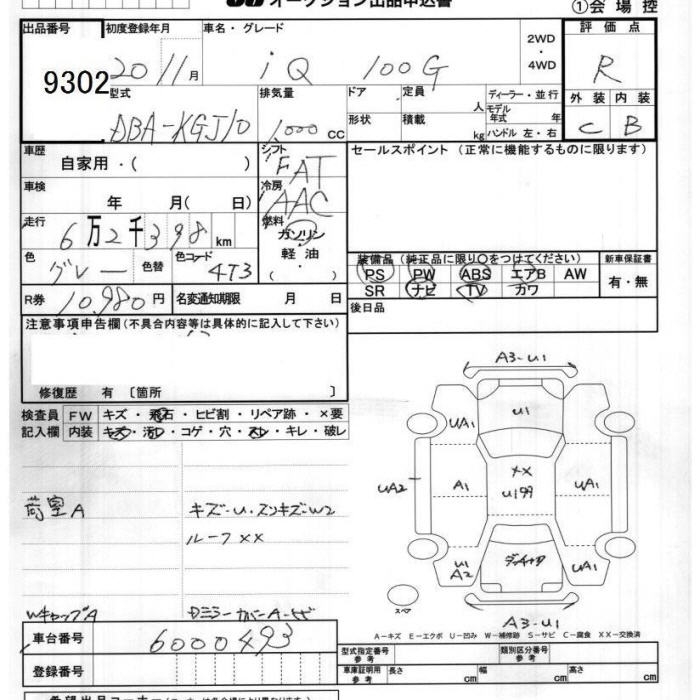 オークション出品申込書
①会場控
出品番号 初度登録年月 車名・グレード 2WD・4WD 評価点
9302 20 11月 iQ 100G R
型式 排気量 ドア 定員 人 ディーラー・並行 外装 内装
DBA-KGJ10 1,000cc 形状 積載 kg モデル年式 年 C B
ハンドル 左・右
車歴 自家用・( ) シフト FAT セールスポイント (正常に機能するものに限ります)
車検 年 月( 日) 冷房 AAC
走行 6万2千398km 燃料 ガソリン
軽油・( )
色 グレー 色替 色コード 4T3
装備品 (純正品に限り○をつけてください) 新車保証書
PS PW ABS エアB AW 有・無
SR ナビ TV カワ
R券 10,980円 名変通知期限 月 日 後日品
注意事項申告欄 (不具合内容等は具体的に記入して下さい)
修復歴 有 〔箇所 〕
検査員 FW キズ・飛石・ヒビ割・リペア跡・×要
記入欄 内装 キズ・汚レ・コゲ・穴・スレ・キレ・破レ
荷室A キズ-U・スンキズ-W2
ルーフXX
WキャップA DミラーカバーA-ヒビ
A3-U1
UA1 U1 UA1
UA2 A1 XX U199 UA1
U1 A2 UA1
スペア
A3-U1
A－キズ E－エクボ U－凹み W－補修跡 S－サビ C－腐食 XX－交換済
車台番号 6000493
登録番号
型式指定番号 参考 類別区分番号 参考
車庫証明用 参考 長さ 幅 高さ cm